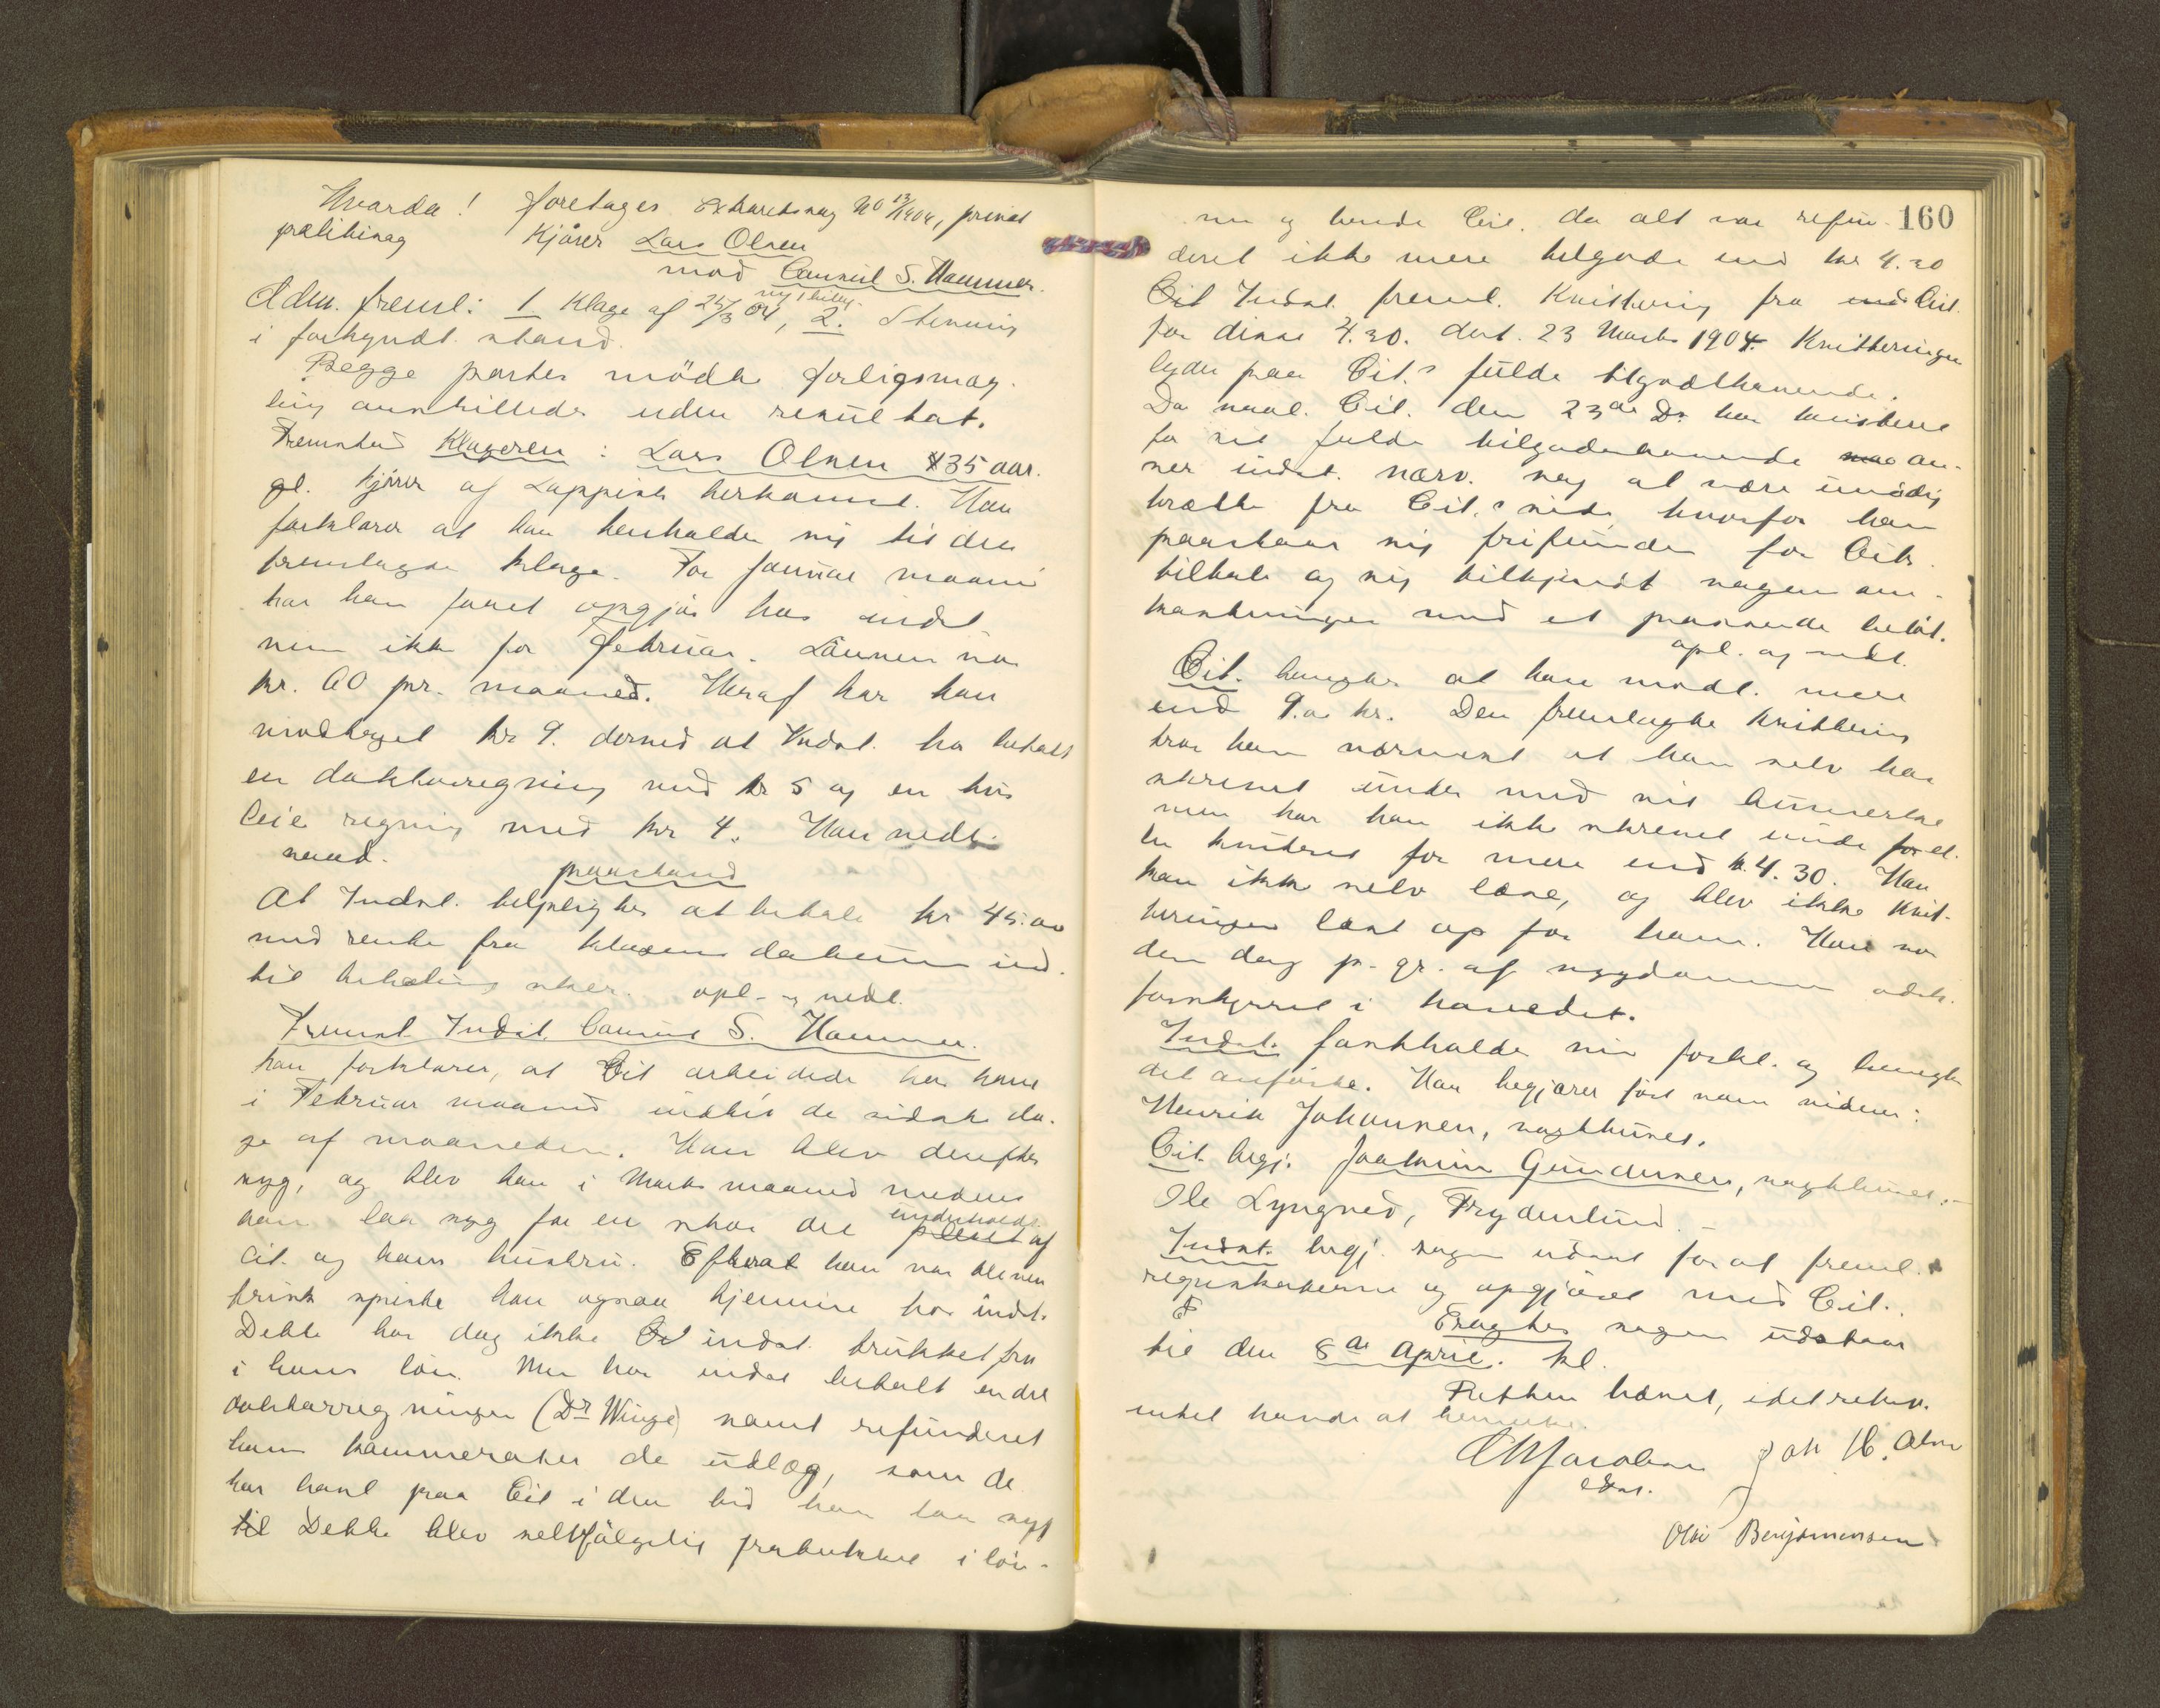 Hvorda! foretoges Extraretssag No 13/1904, privat
politisag Kjører Lars Olsen
mod Consul S. Hammer.
Adm. freml: 1 Klage af 24/3 04, 2. Stevning
i forkyndt stand.
Begge parter mödte forligsmæg-
ling anstilledes uden resultat.
Fremstod Klageren: Lars Olsen 35 aar.
gl. kjører af Lappisk herkomst. Han
forklarer at han henholder sig til den
fremlagte klage. For Januar maaned
har han faaet opgjør hos indst
men ikke for Februar. Lönnen var
kr. 60 pr. maaned. Heraf har han
modtaget kr 9. derved at Indst. har betalt
en doktorregning med kr 5 og en hus
leie regning med kr 4. Han nedl.
saad.
paastand
At Indst. tilpligtes at betale kr 45.00
med rente fra klagens datum ind-
til betaling sker. opl. og vedt.
Fremst. Indst. Consul S. Hammer.
han forklarer, at Cit arbeidede hos ham
i Februar maaned indtil de sidste da-
ge af maaneden. Han blev derefter
syg, og blev han i Marts maaned medens
han laa syg for en stor del underholdt af
Cit. og hans hustru. Efterat han var bleven
frisk spiste han ogsaa hjemme hos indst.
Dette har dog ikke indst. trukket fra
i hans løn. Men har indst betalt en del
doktorregninger (Dr Winge) samt refunderet
ham kammerater de udlæg, som de
har havt paa Cit i den tid han laa syg
til Dette blev selvfølgelig fratrukket i løn-
160
nen og havde Cit. da alt var refun-
deret ikke mere tilgode end kr 4.30
Cit Indst. freml. Kvittering fra Cit.
for disse 4.30. dat. 23 Marts 1904. Kvitteringen
lyder paa Cit.s fulde tilgodehavende.
Da saal. Cit. den 23de Ds. har kvitteret
for sit fulde tilgodehavende an-
ser indst. nærv. sag at være unödig
trætte fra Cit.s side, hvorfor han
paastaar sig frifunden for Cits.
tiltale og sig tilkjendt sagens om-
kostninger med et passende belöb.
opl. og vedt.
Cit. benegter at have modt. mere
end 9.00 kr. Den fremlagte kvittering
tror han nærmest at han selv har
skrevet under med sit bumerke
men har han ikke skrevet under for el-
ler kvitteret for mere end kr. 4.30. Han
kan ikke selv læse, og blev ikke kvit-
teringen læst op for ham. Han var
den dag p. gr. af sygdommen
forstyrret i hovedet.
Indst. fastholder sin forkl. og benegter
det anførte. Han begjærer ført som vidner:
Henrik Johansen, sagkhuset.
Cit. begj. Joakim Gundersen, sagkhuset,
Ole Lyngved, Frydenlund.
Indst. begj. sagen udsat for at freml.
regnskaberne og opgjöret med Cit.
Eragtes sagen udstaar
til den 8de April. kl.
Retten hævet, idet retten
intet havde at bemerke.
Joh H. Olsen
Olai Benjaminsen